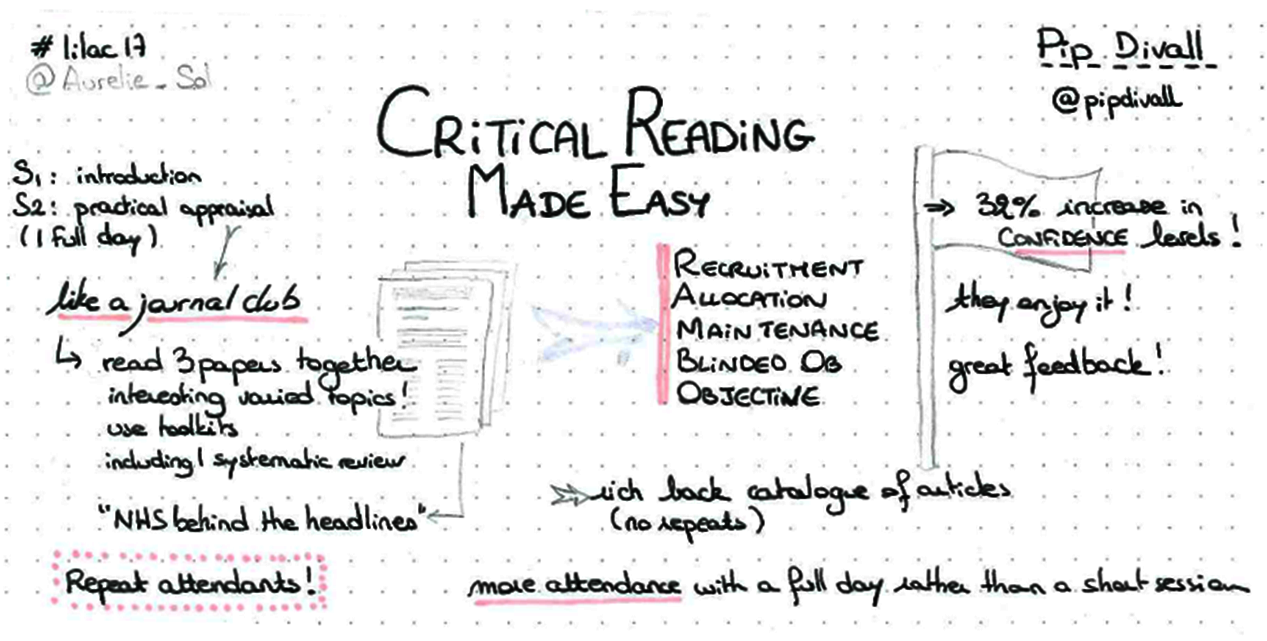 # lilac17
@Aurelie_Sol
Pip Divall
@pipdivall
CRiTiCAL READiNG
MADE EASY
S1: introduction
S2: practical appraisal
(1 full day)
like a journal club
read 3 papers together
interesting varied topics!
use toolkits
including 1 systematic review
"NHS behind the headlines"
Repeat attendants!
RECRUiTMENT
ALLOCATiON
MAiNTENANCE
BLiNDED OB
OBJECTiVE
⇒ 32% increase in
CONFiDENCE levels!
they enjoy it!
great feedback!
rich back catalogue of articles
(no repeats)
more attendance with a full day rather than a short session